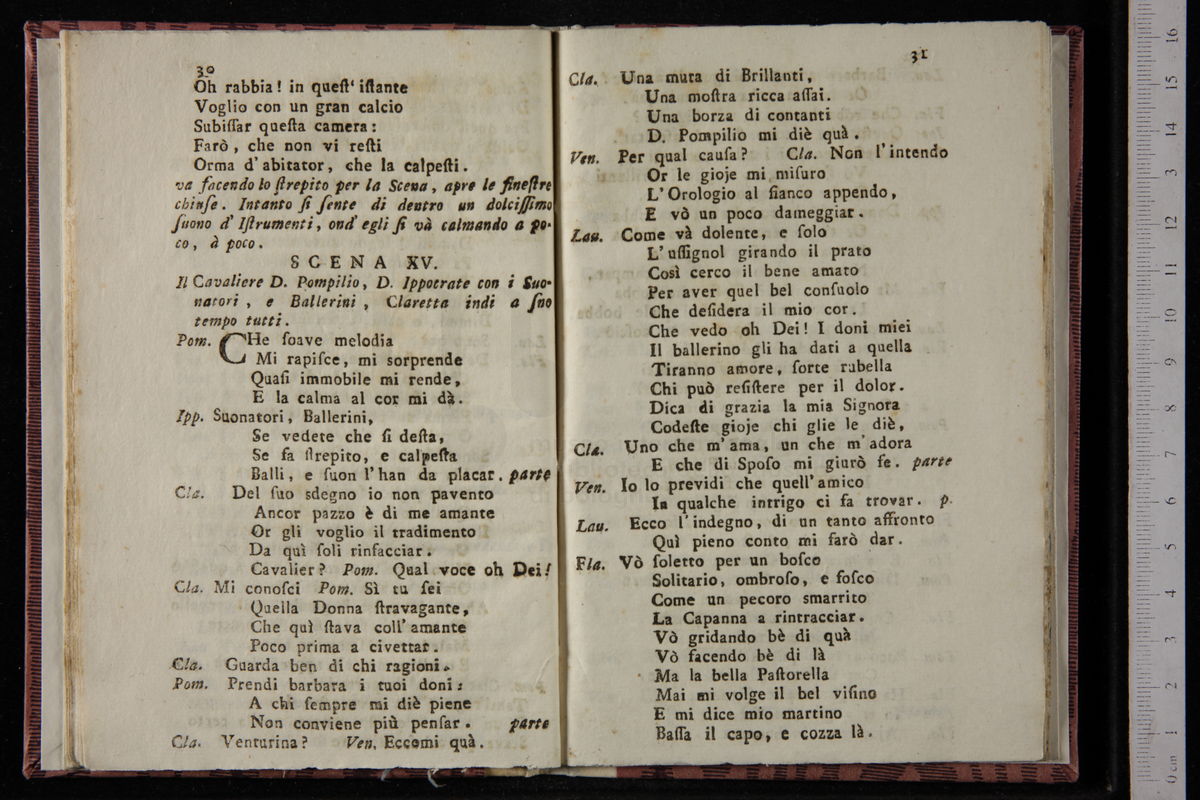 30
Oh rabbia! in queſt' iſtante
Voglio con un gran calcio
Subiſſar queſta camera:
Farò, che non vi reſti
Orma d'abitator, che la calpeſti.
va facendo lo ſtrepito per la Scena, apre le fineſtre
chiuſe. Intanto ſi ſente di dentro un dolciſſimo
ſuono d' Iſtrumenti, ond' egli ſi và calmando a po-
co, à poco.
SCENA XV.
Il Cavaliere D. Pompilio, D. Ippocrate con i Suo-
natori, e Ballerini, Claretta indi a ſuo
tempo tutti.
Pom. CHe ſoave melodia
Mi rapiſce, mi sorprende
Quaſi immobile mi rende,
E la calma al cor mi dà.
Ipp. Suonatori, Ballerini,
Se vedete che ſi deſta,
Se fa ſtrepito, e calpeſta
Balli, e ſuon l'han da placar. parte
Cla. Del ſuo sdegno io non pavento
Ancor pazzo è di me amante
Or gli voglio il tradimento
Da quì ſoli rinfacciar.
Cavalier? Pom. Qual voce oh Dei!
Cla. Mi conoſci Pom. Sì tu ſei
Quella Donna ſtravagante,
Che quì ſtava coll'amante
Poco prima a civettar.
Cla. Guarda ben di chi ragioni.
Pom. Prendi barbara i tuoi doni:
A chi ſempre mi diè piene
Non conviene più penſar. parte
Cla. Venturina? Ven. Eccomi quà.
31
Cla. Una muta di Brillanti,
Una moſtra ricca aſſai.
Una borza di contanti
D. Pompilio mi diè quà.
Ven. Per qual cauſa? Cla. Non l'intendo
Or le gioje mi miſuro
L'Orologio al fianco appendo,
E vò un poco dameggiar.
Lau. Come và dolente, e ſolo
L'uſſignol girando il prato
Così cerco il bene amato
Per aver quel bel conſuolo
Che deſidera il mio cor.
Che vedo oh Dei! I doni miei
Il ballerino gli ha dati a quella
Tiranno amore, ſorte rubella
Chi può reſiſtere per il dolor.
Dica di grazia la mia Signora
Codeſte gioje chi glie le diè,
Cla. Uno che m'ama, un che m'adora
E che di Spoſo mi giurò fe. parte
Ven. Io lo previdi che quell'amico
In qualche intrigo ci fa trovar. p.
Lau. Ecco l'indegno, di un tanto affronto
Quì pieno conto mi farò dar.
Fla. Vò ſoletto per un boſco
Solitario, ombroſo, e foſco
Come un pecoro smarrito
La Capanna a rintracciar.
Vò gridando bè di quà
Vò facendo bè di là
Ma la bella Paſtorella
Mai mi volge il bel viſino
E mi dice mio martino
Baſſa il capo, e cozza là.